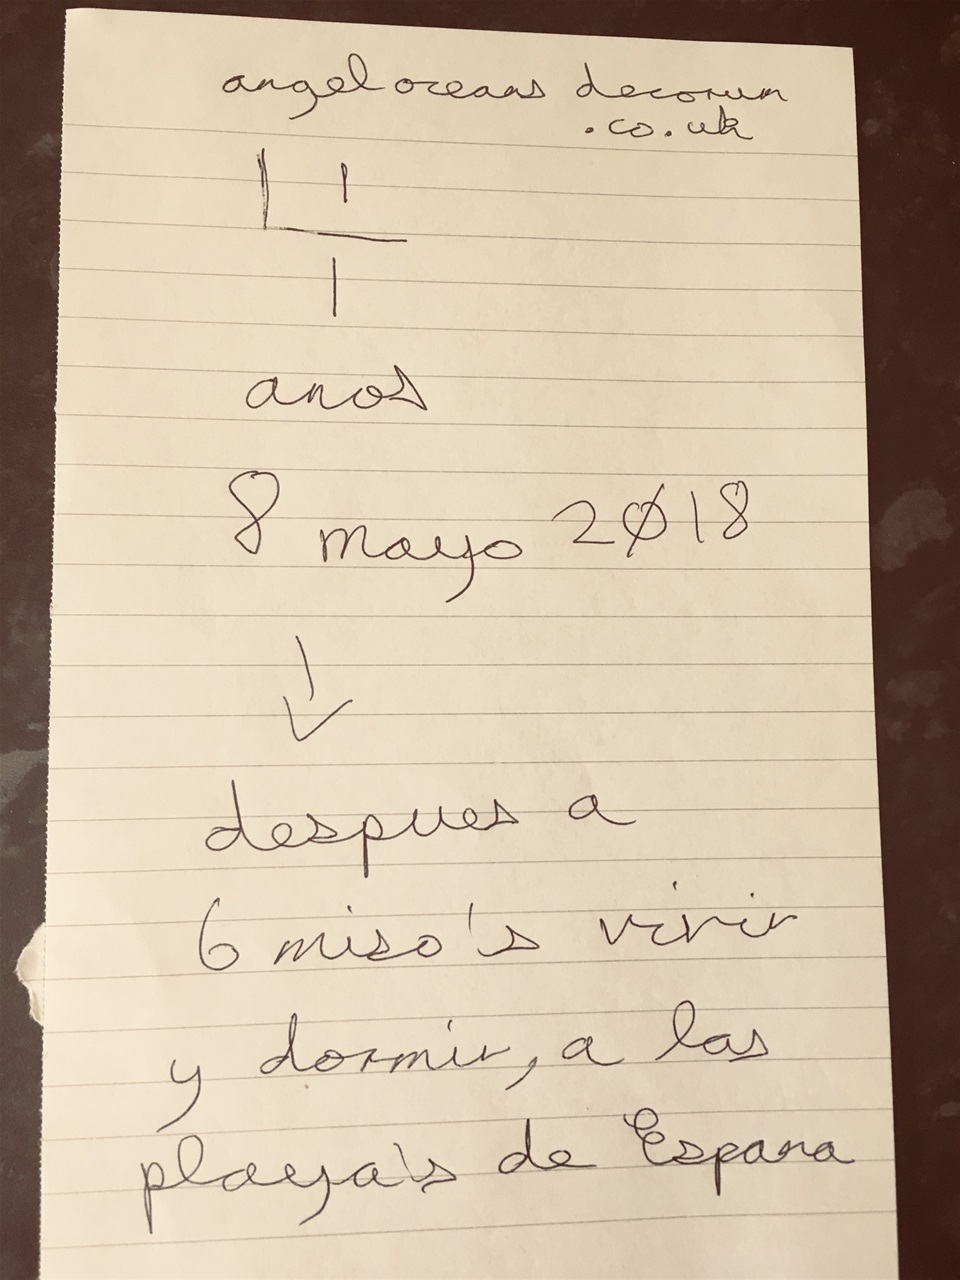 angeloceans decorum
.co.uk
41
anos
8 mayo 2018
despues a
6 miso's vivir
y dormir, a las
playa's de Espana